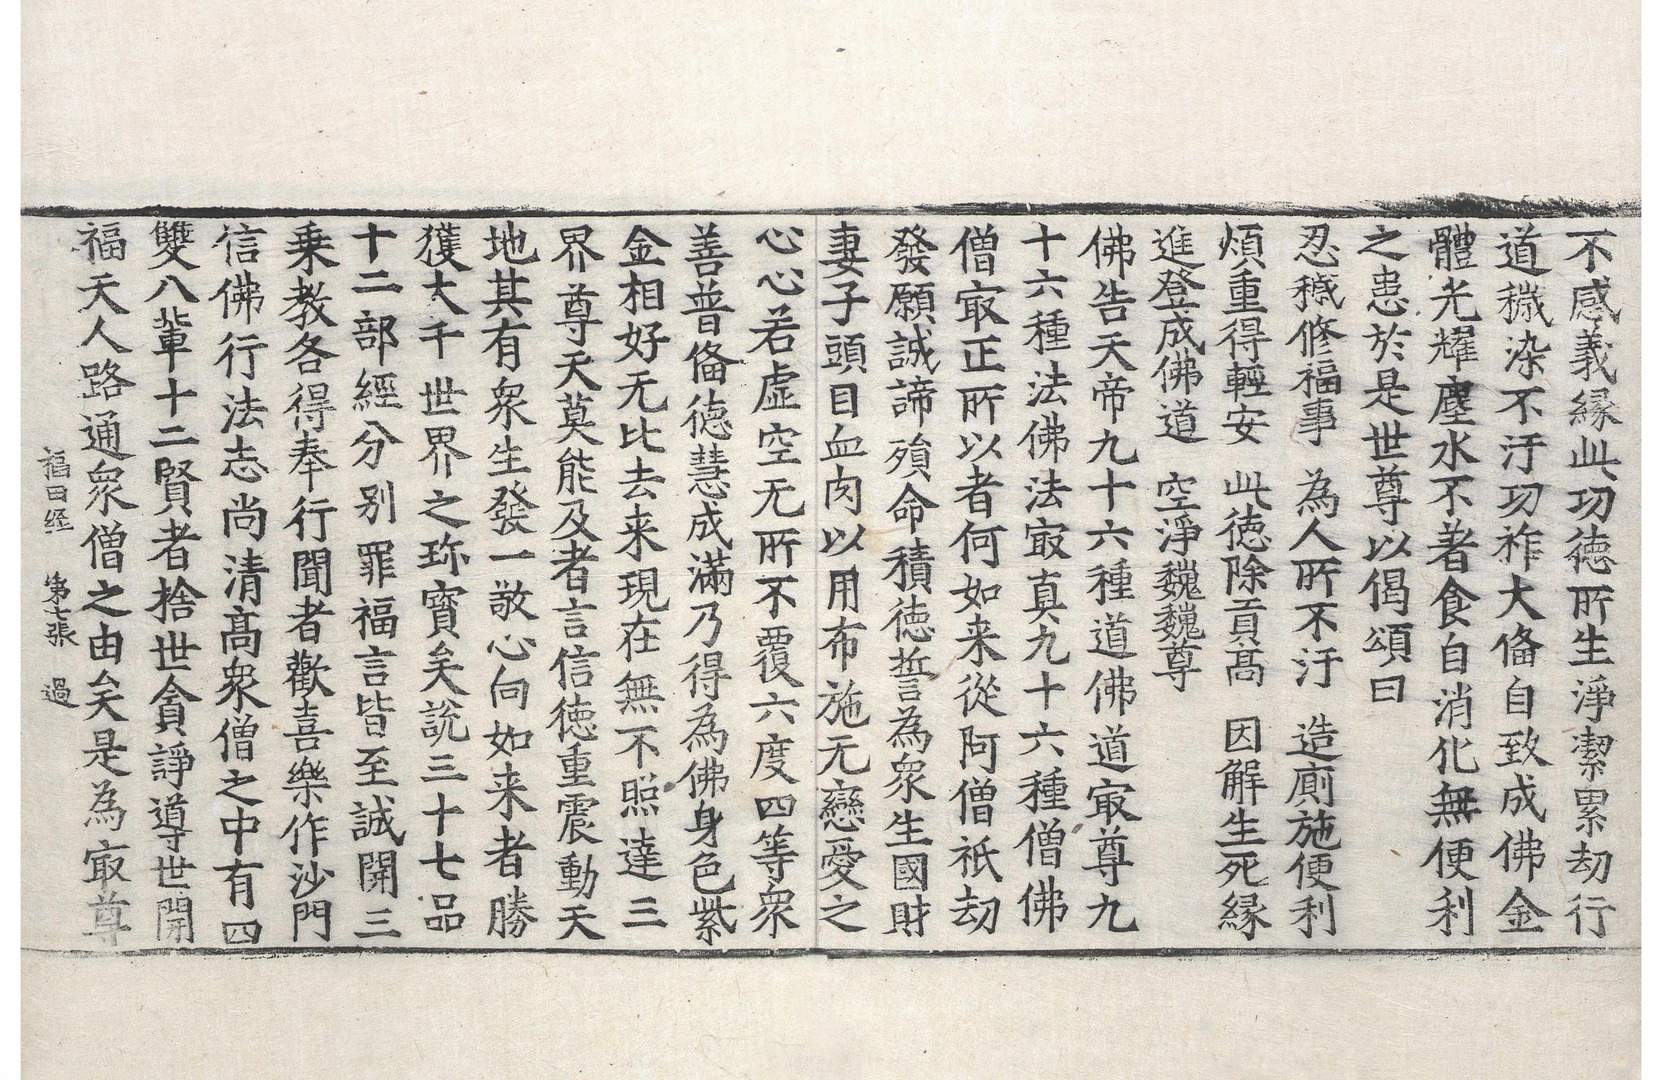 不感義縁此功徳所生淨潔累劫行
道穢染不汙功祚大俻自致成佛金
體光耀塵水不著食自消化無便利
之患於是世尊以偈頌曰
忍穢修福事 為人所不汙 造廁施便利
煩重得輕安 此徳除貢髙 因解生死縁
進登成佛道 空淨巍巍尊
佛告天帝九十六種道佛道㝡尊九
十六種法佛法㝡真九十六種僧佛
僧㝡正所以者何如来從阿僧祇劫
發願誠諦殞命積徳誓為衆生國財
妻子頭目血肉以用布施无戀愛之
心心若虛空无所不覆六度四等衆
善普俻徳慧成滿乃得為佛身色紫
金相好无比去来現在無不照達三
界尊天莫能及者言信徳重震動天
地其有衆生發一敬心向如来者勝
獲大千世界之珎寶矣說三十七品
十二部經分别罪福言皆至誠開三
乗教各得奉行聞者歡喜樂作沙門
信佛行法志尚清髙衆僧之中有四
雙八輩十二賢者捨世貪諍導世開
福天人路通衆僧之由矣是為㝡尊
福田経 第七張 過